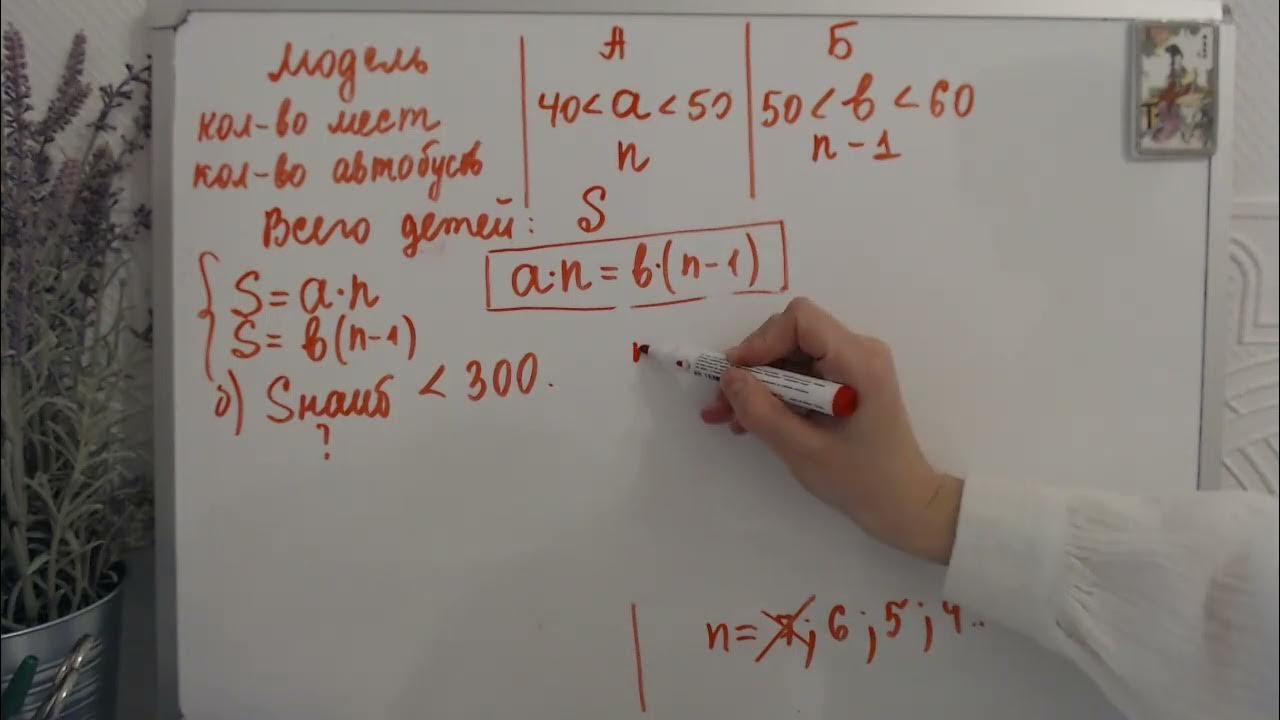 Модель | А | Б
кол-во мест | 40 < a < 50 | 50 < b < 60
кол-во автобусов | n | n - 1
Всего детей: S
a·n = b·(n-1)
{ S = a·n
S = b(n-1)
б) Sнаиб < 300.
?
n = 7; 6; 5; 4..